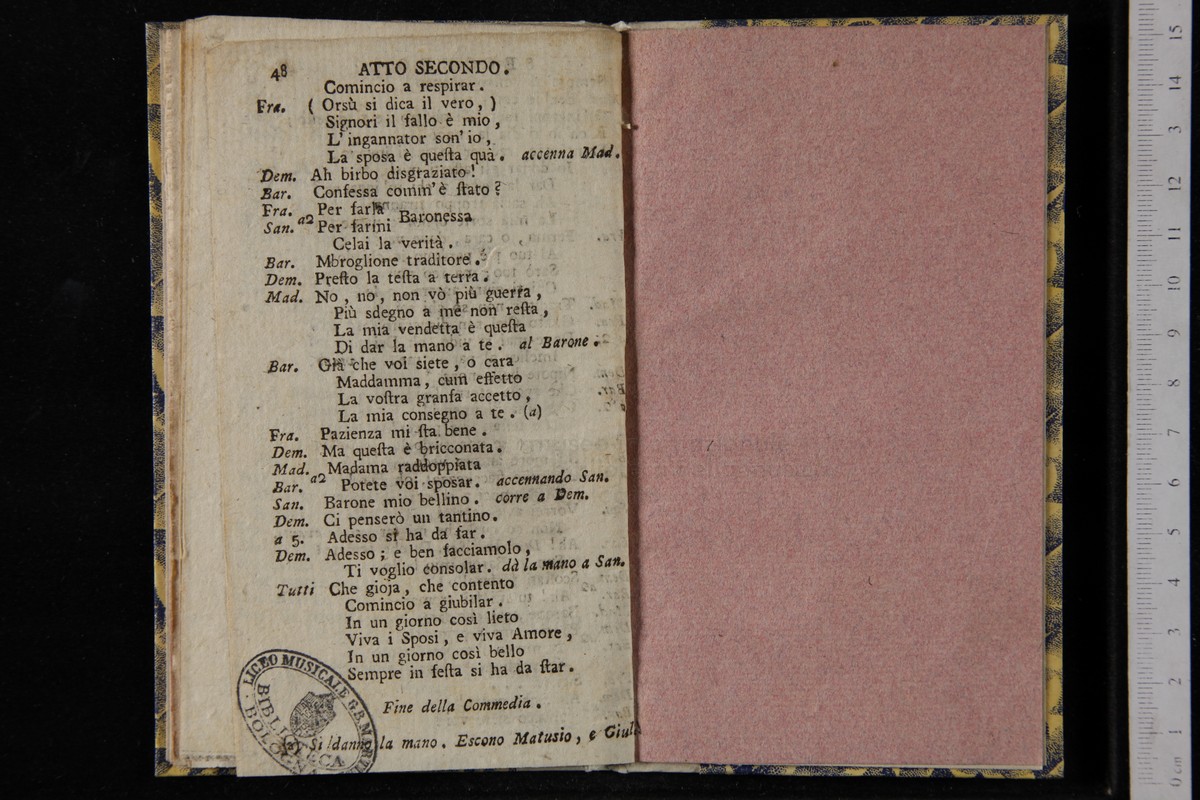 48 ATTO SECONDO.
Comincio a respirar.
Fra. ( Orsù si dica il vero, )
Signori il fallo è mio,
L'ingannator son'io,
La sposa è queſta quà. accenna Mad.
Dem. Ah birbo disgraziato!
Bar. Confessa comm'è ſtato?
Fra. Per farla
San. a2 Per farmi Baronessa
Celai la verità.
Bar. Mbroglione traditore.
Dem. Preſto la teſta a terra.
Mad. No, no, non vò più guerra,
Più sdegno a me non reſta,
La mia vendetta è queſta
Di dar la mano a te. al Barone.
Bar. Già che voi siete, o cara
Maddamma, cum effetto
La voſtra granfa accetto,
La mia consegno a te. (a)
Fra. Pazienza mi ſta bene.
Dem. Ma queſta è bricconata.
Mad. Madama raddoppiata
Bar. a2 Potete voi sposar. accennando San.
San. Barone mio bellino. corre a Dem.
Dem. Ci penserò un tantino.
a 5. Adesso si ha da far.
Dem. Adesso; e ben facciamolo,
Ti voglio consolar. dà la mano a San.
Tutti Che gioja, che contento
Comincio a giubilar.
In un giorno così lieto
Viva i Sposi, e viva Amore,
In un giorno così bello
Sempre in feſta si ha da ſtar.
Fine della Commedia.
(a) Si danno la mano. Escono Matusio, e
LICEO MUSICALE G.B. MARTINI
BIBLIOTECA
BOLOGNA
15
14
13
12
11
10
9
8
7
6
5
4
3
2
1
0 cm